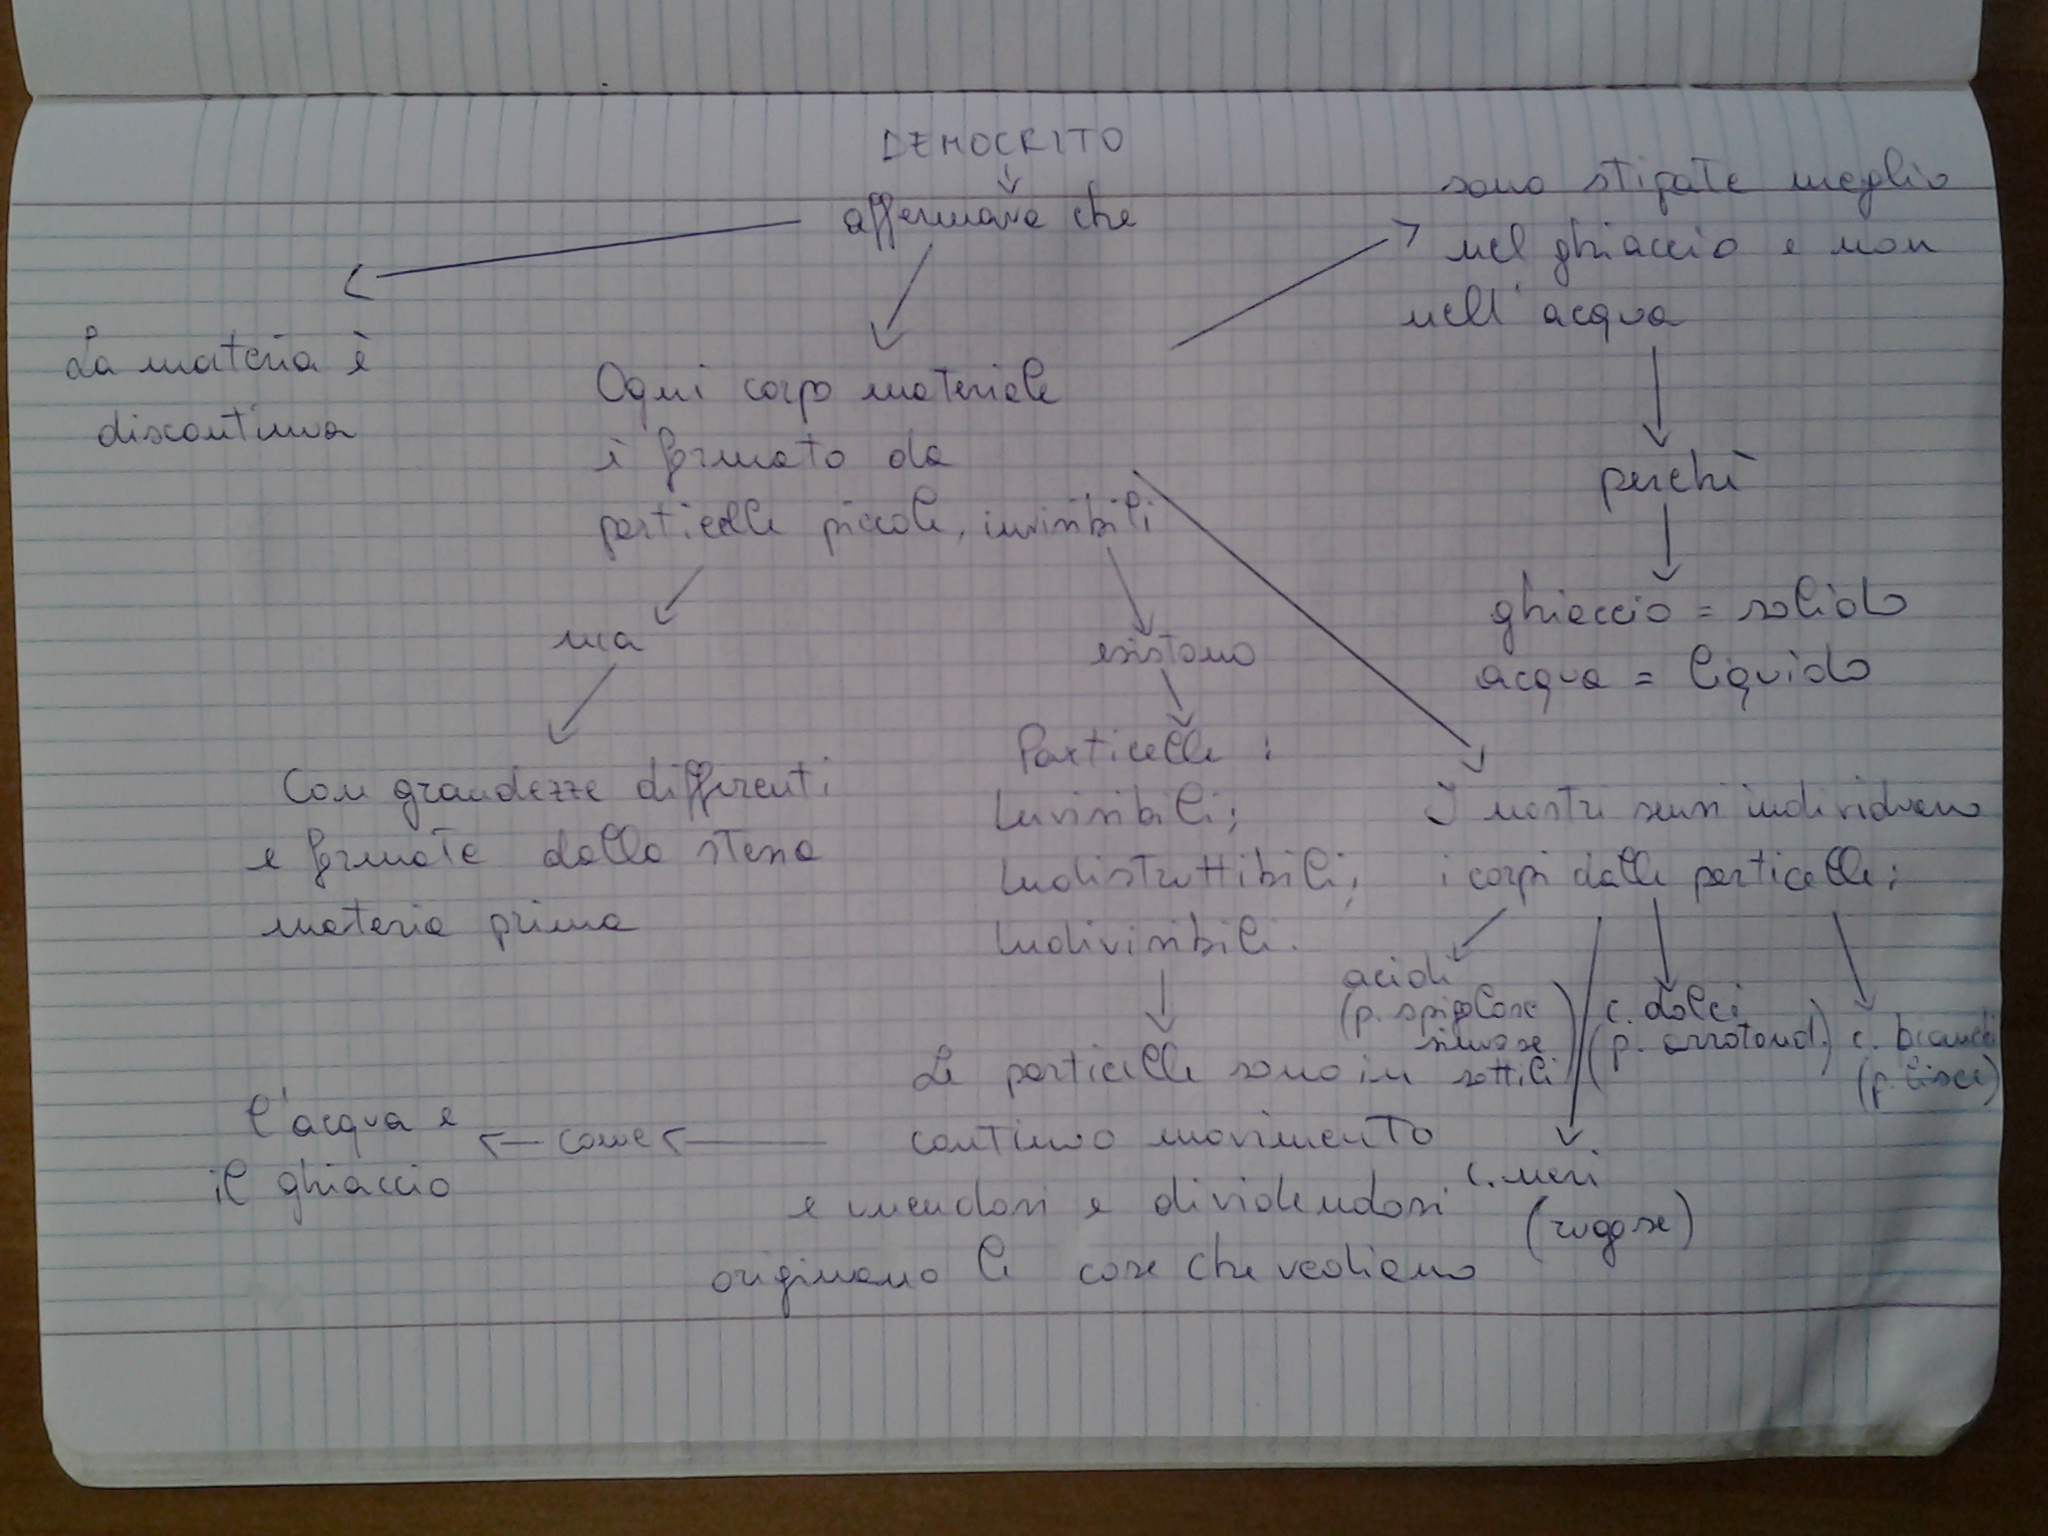 DEMOCRITO
affermava che
sono stipate meglio
nel ghiaccio e non
nell'acqua
perchè
ghiaccio = solido
acqua = liquido
La materia è
discontinua
Ogni corpo materiale
è formato da
particelle piccole, invisibili
ma
Con grandezze differenti
e formate dalla stessa
materia prima
esistono
Particelle :
Invisibili;
Indistruttibili;
Indivisibili.
Le particelle sono in
continuo movimento
e unendosi e dividendosi
originano le cose che vediamo
come
l'acqua e
il ghiaccio
I nostri sensi individuano
i corpi dalle particelle;
acidi
(p. spigolose
sinuose
sottili)
c. neri
(rugose)
c. dolci
(p. arrotond.)
c. bianchi
(p. lisce)